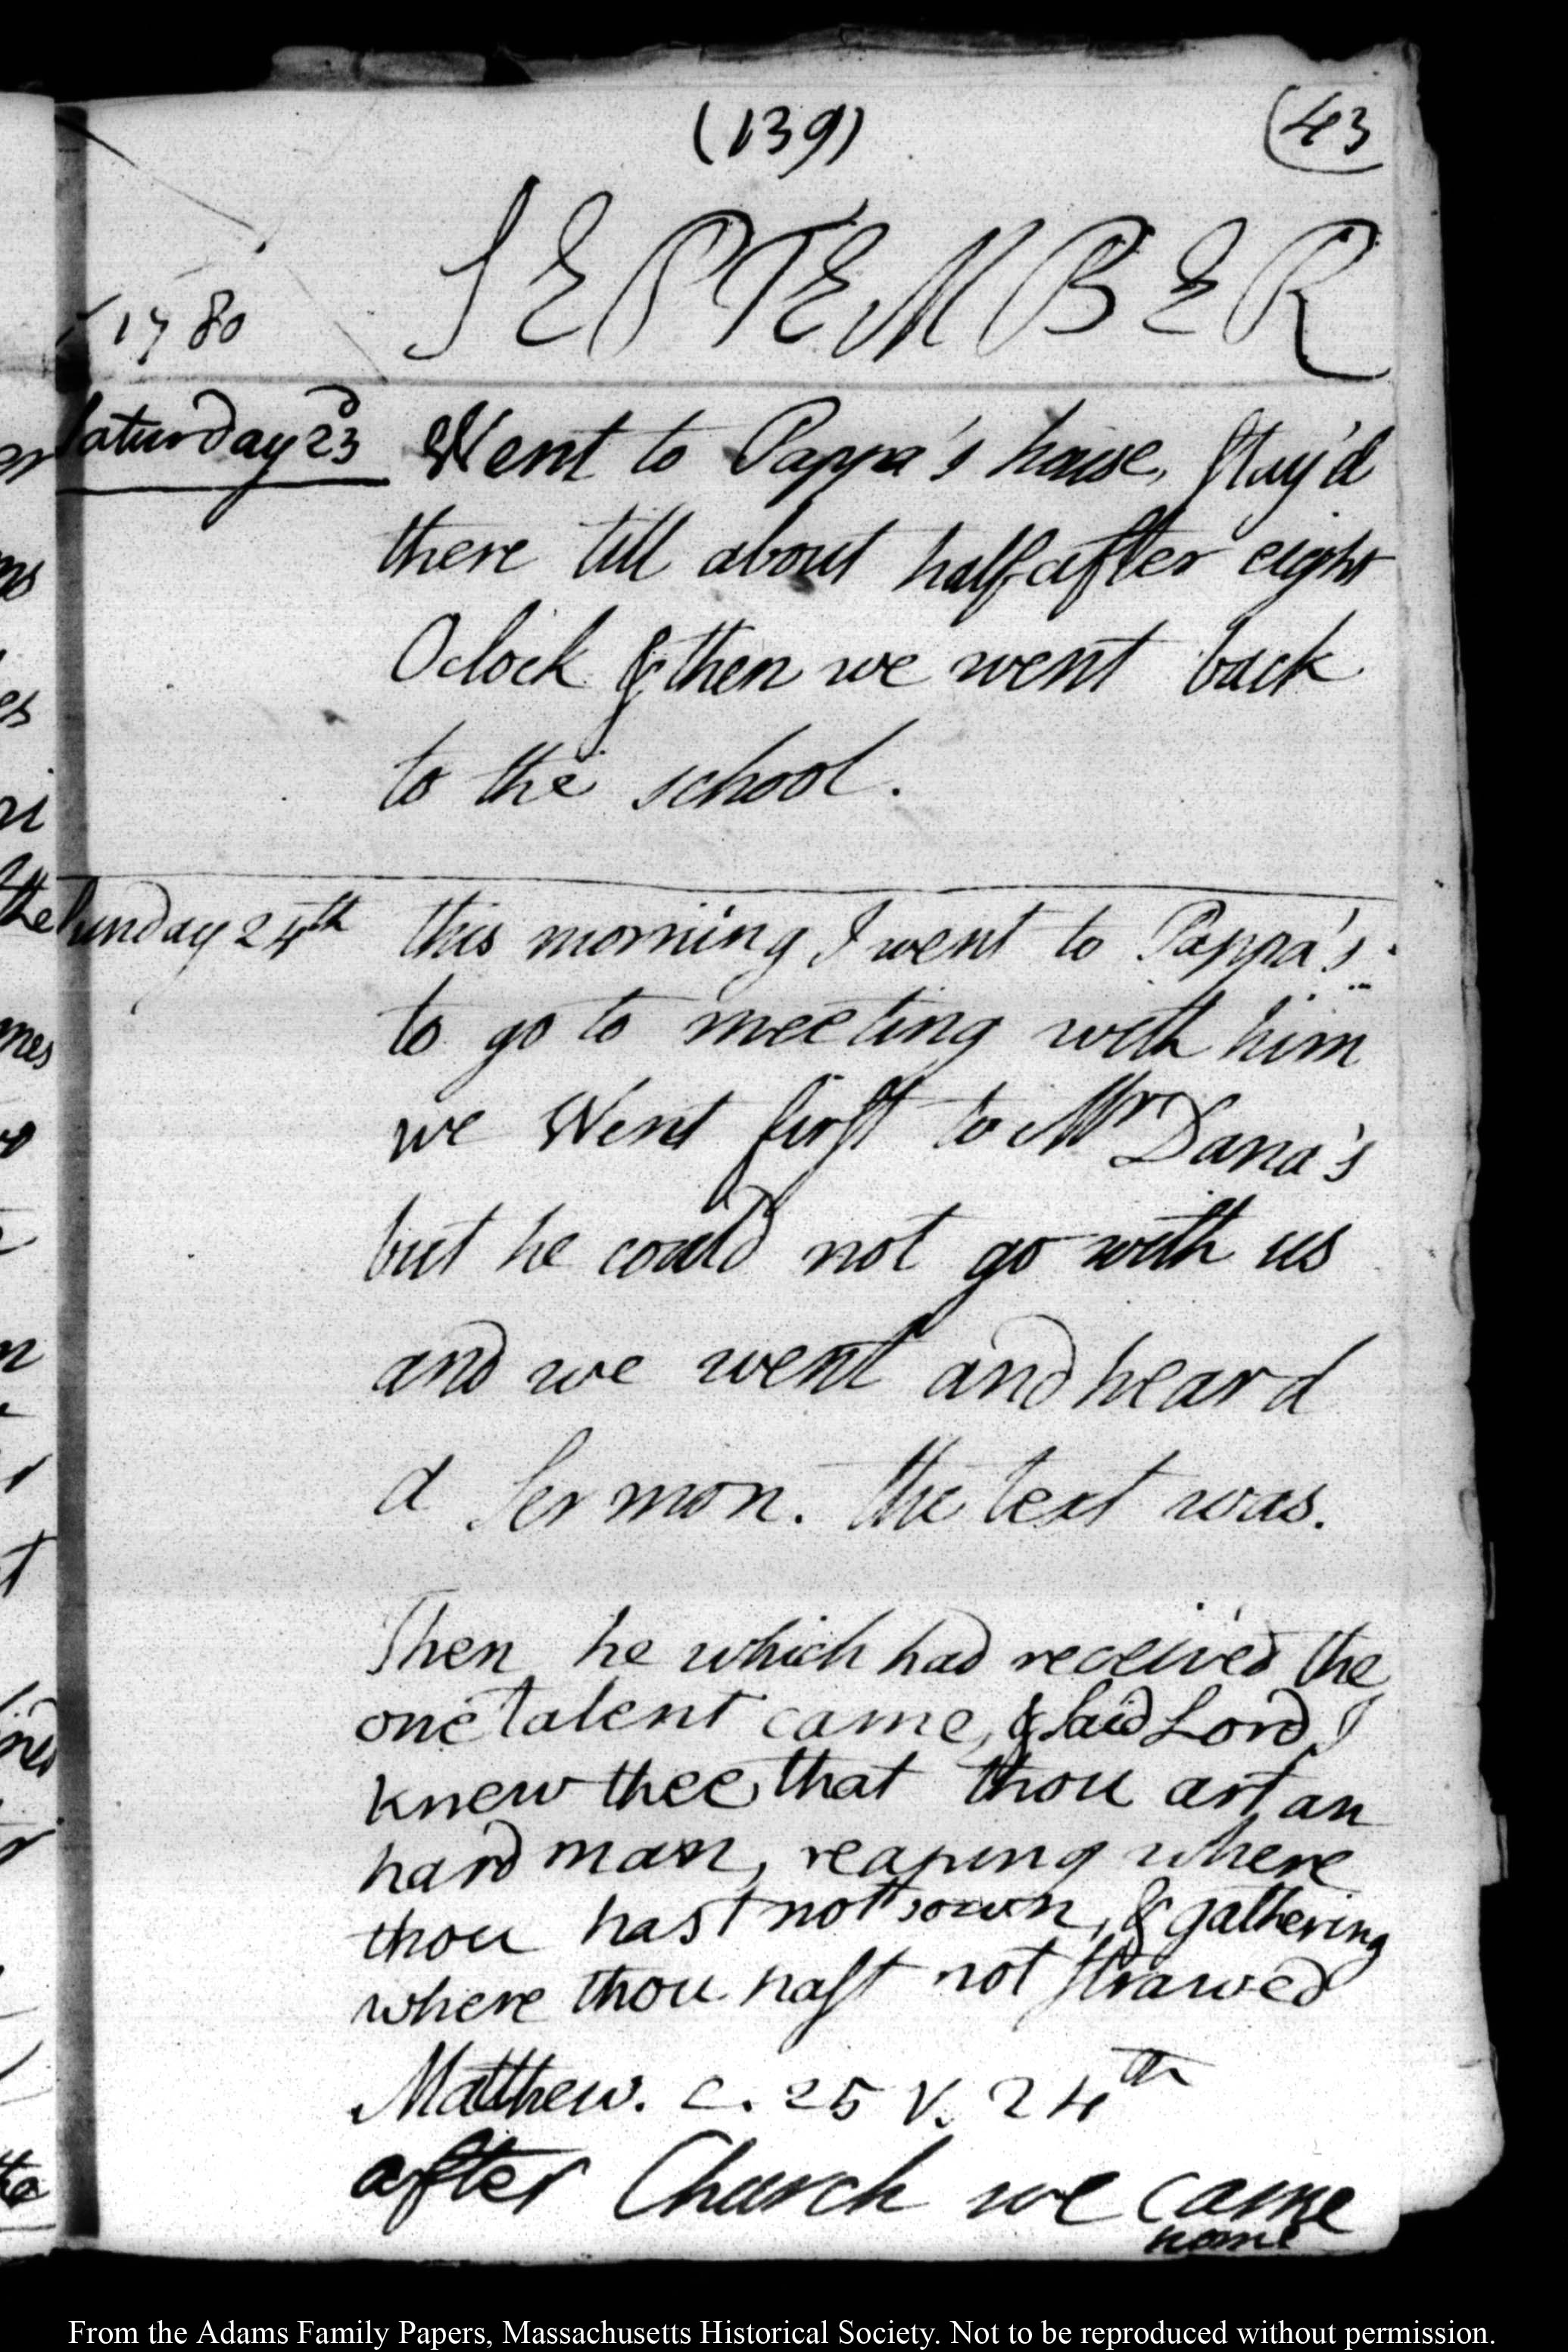 (139)
(43
1780
SEPTEMBER
Saturday 23d
Went to Pappa's house, Stay'd
there till about half after eight
Oclock & then we went back
to the school.
Sunday 24th
this morning I went to Pappa's
to go to meeting with him
we Went first to Mr Dana's
but he could not go with us
and we went and heard
a Sermon. the text was.
Then he which had received the
one talent came, & said Lord I
knew thee that thou art an
hard man, reaping where
thou hast not sown, & gathering
where thou hast not strawed
Matthew. C. 25 V. 24th
after Church we came
home
From the Adams Family Papers, Massachusetts Historical Society. Not to be reproduced without permission.